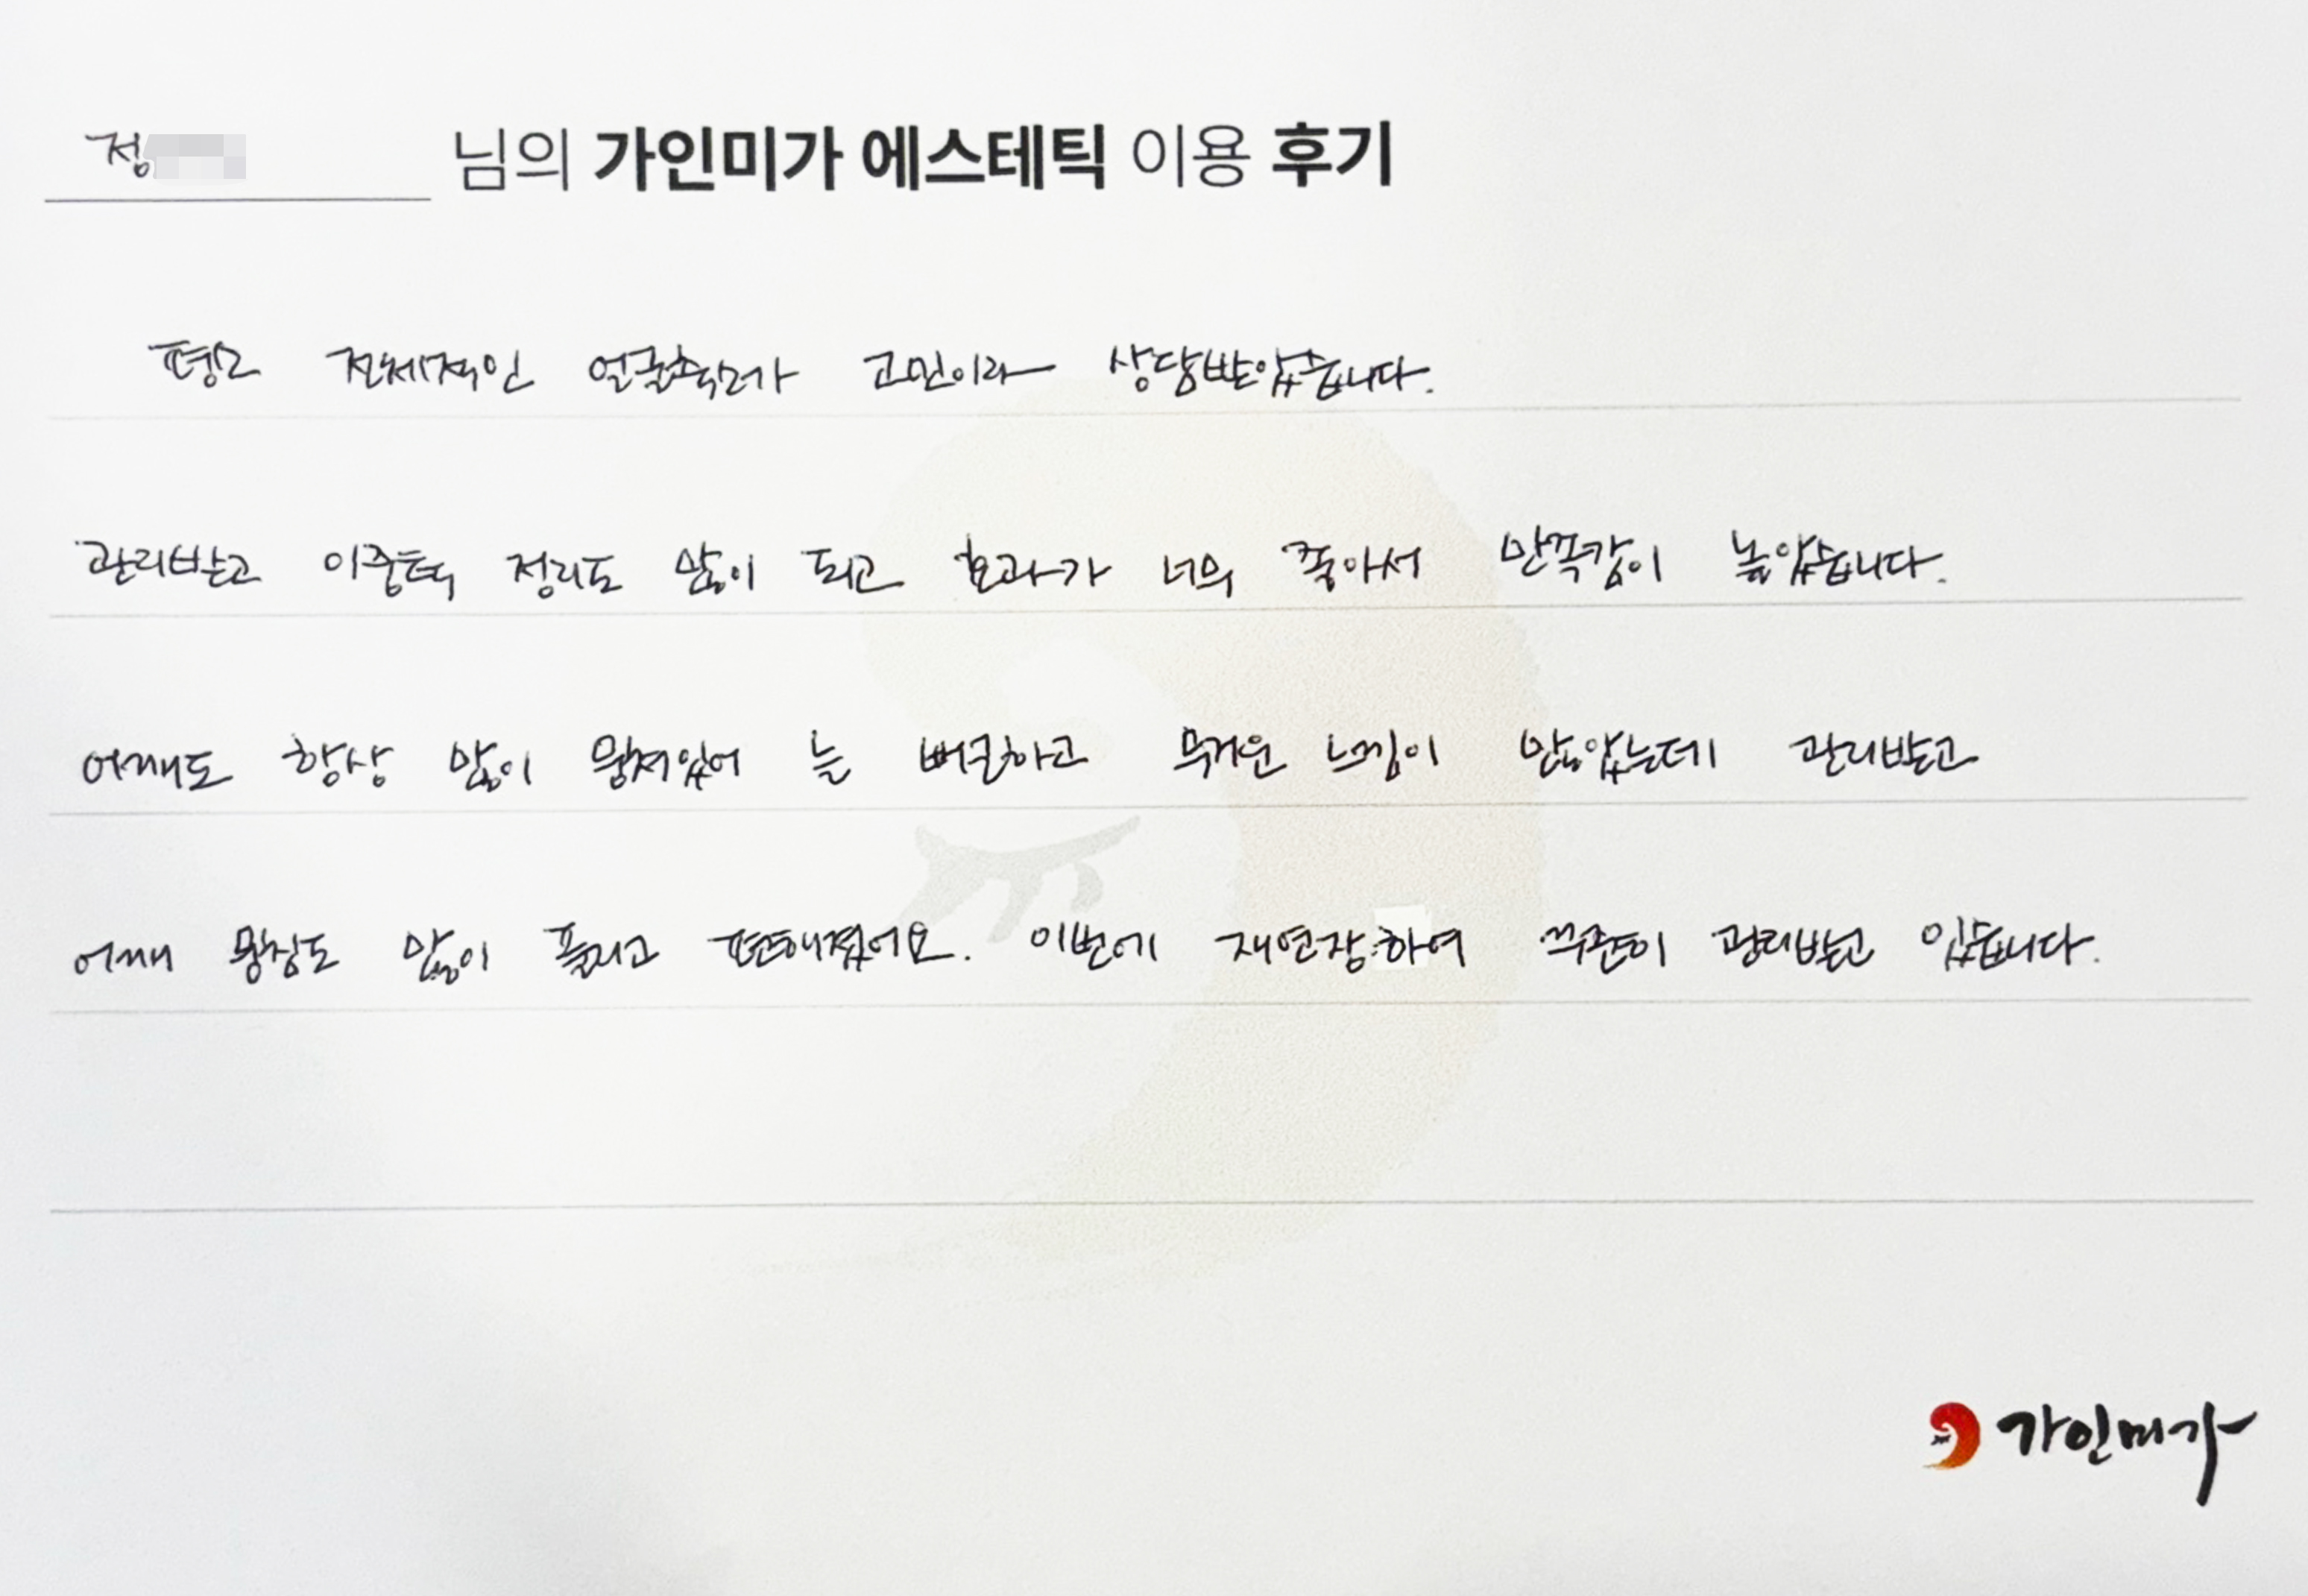 정 님의 가인미가 에스테틱 이용 후기
평소 전체적인 얼굴축소가 고민이라 상담받았습니다.
관리받고 이중턱 정리도 많이 되고 효과가 너무 좋아서 만족감이 높았습니다.
어깨도 항상 많이 뭉쳐있어 늘 뻐근하고 무거운 느낌이 많았는데 관리받고
어깨 뭉침도 많이 풀리고 편해졌어요. 이번에 재연장하여 꾸준히 관리받고 있습니다.
가인미가